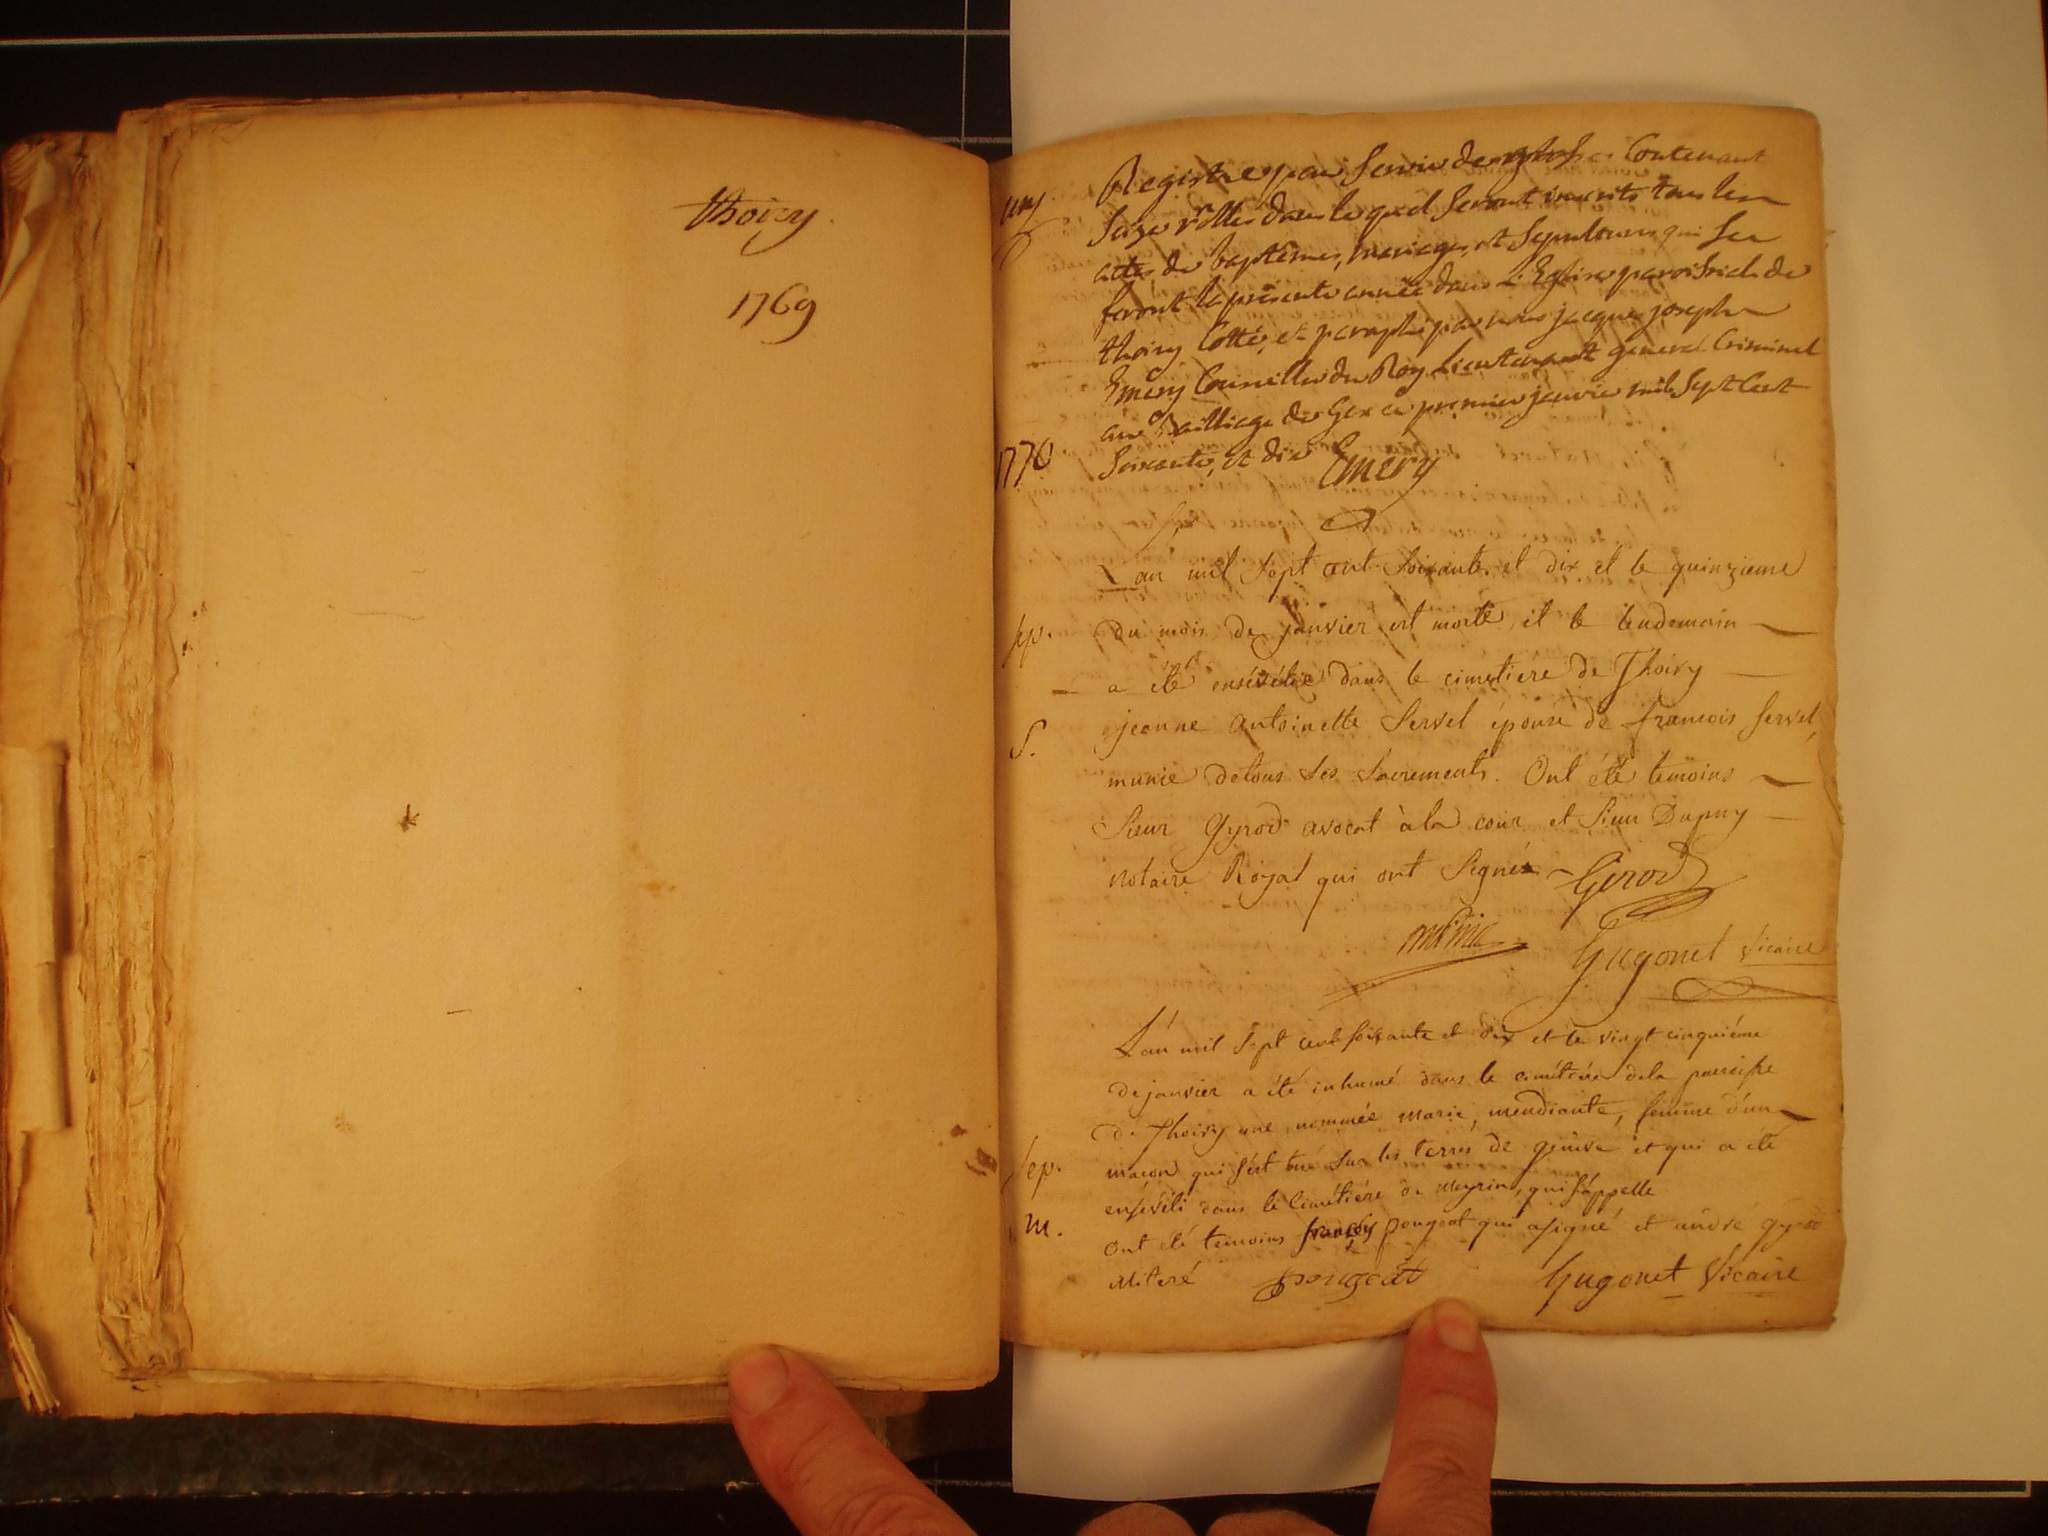 thoiry.
1769
Registre pour servir de Contenant
seize rolles dans lequel seront inscrits tous les
actes de baptêmes, mariages, et sepultures qui se
feront la présente année dans L'Eglise paroissiale de
thoiry Cotté, et paraphé par nous jacque joseph
Emery Conseiller du Roy Lieutenant general Criminel
au Bailliage de Gex ce premier janvier mil sept Cent
1770
soixante, et dix Emery
L'an mil sept cent soixante et dix et le quinzieme
sep. du mois de janvier est morte, et le lendemain
a été ensévélie dans le cimetiere de Thoiry
S. jeanne antoinette Servel épouse de francois servel,
munie de tous ses sacrements. Ont été temoins
Sieur Gyrod avocat à la cour et Sieur Dupuy
notaire Royal qui ont signés Girod
Gugonet Vicaire
L'an mil sept cent soixante et dix et le vingt cinquiéme
de janvier a été inhumé dans le cimétére de la paroisse
de Thoiry une nommée marie, mendiante, femme d'un
sep. macon qui s'est tué sur les terres de genève et qui a été
enséveli dans le Cimétiére de Meyrin, qui s'appelle
m. ont été temoins françois pougeat qui a signé et andré gyrod
illiteré pougeat Gugonet Vicaire